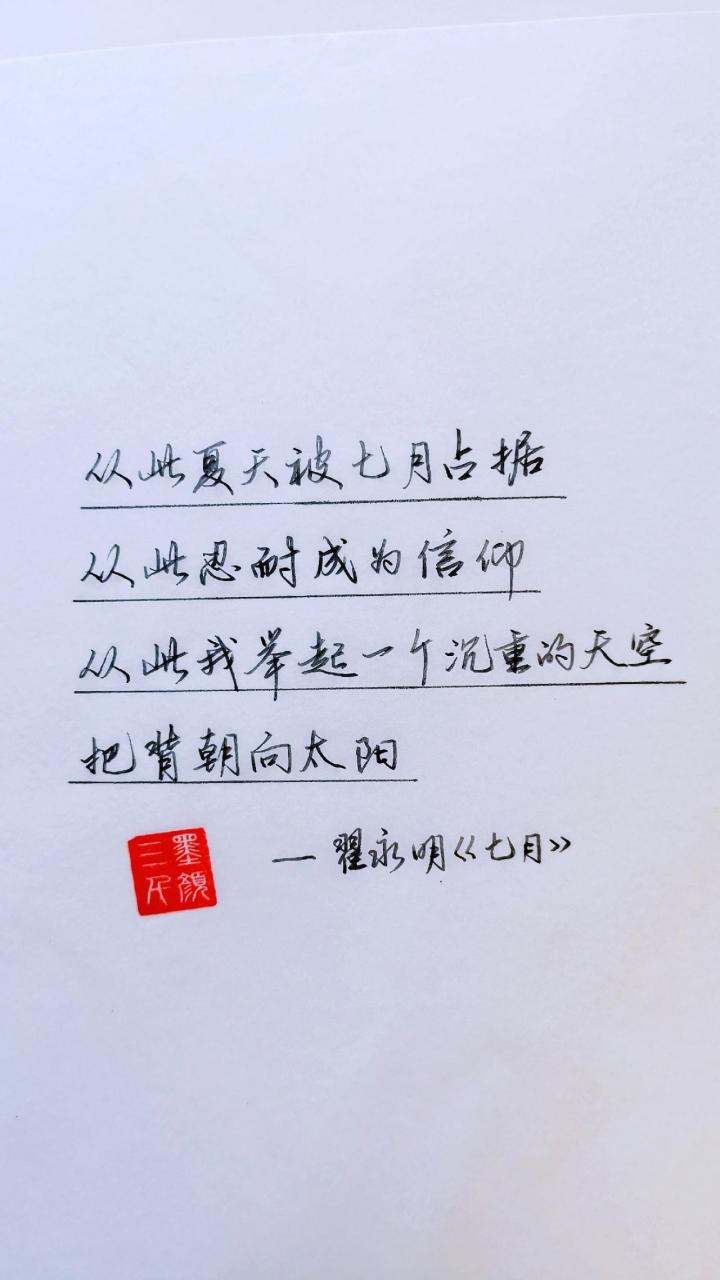 从此夏天被七月占据
从此忍耐成为信仰
从此我举起一个沉重的天空
把背朝向太阳
—翟永明《七月》
墨颜
三尺